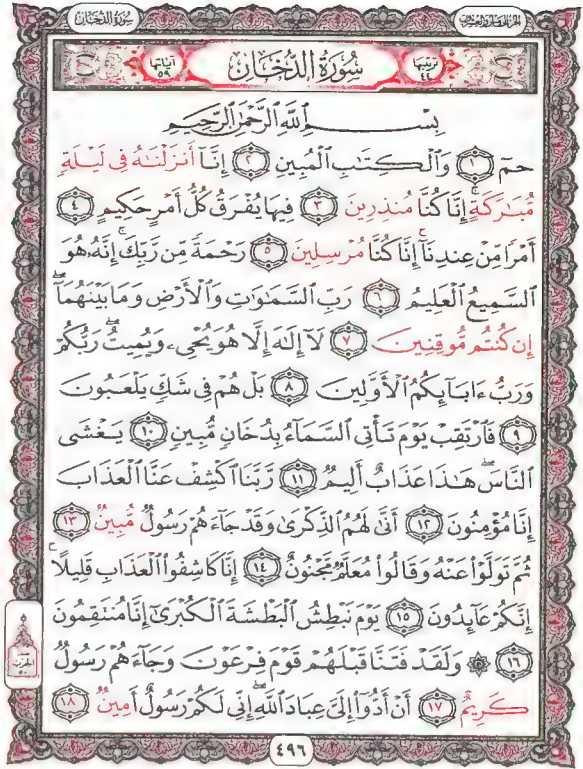 سُورَةُ الدُّخَانِ
الجزء الخامس والعشرون
سُورَةُ الدُّخَانِ
ترتيبها ٤٤
آياتها ٥٩
بِسْمِ ٱللَّهِ ٱلرَّحْمَٰنِ ٱلرَّحِيمِ
حمٓ ١ وَٱلْكِتَٰبِ ٱلْمُبِينِ ٢ إِنَّآ أَنزَلْنَٰهُ فِى لَيْلَةٍ
مُّبَٰرَكَةٍ ۚ إِنَّا كُنَّا مُنذِرِينَ ٣ فِيهَا يُفْرَقُ كُلُّ أَمْرٍ حَكِيمٍ ٤
أَمْرًا مِّنْ عِندِنَآ ۚ إِنَّا كُنَّا مُرْسِلِينَ ٥ رَحْمَةً مِّن رَّبِّكَ ۚ إِنَّهُۥ هُوَ
ٱلسَّمِيعُ ٱلْعَلِيمُ ٦ رَبِّ ٱلسَّمَٰوَٰتِ وَٱلْأَرْضِ وَمَا بَيْنَهُمَآ ۖ
إِن كُنتُم مُّوقِنِينَ ٧ لَآ إِلَٰهَ إِلَّا هُوَ يُحْىِۦ وَيُمِيتُ ۖ رَبُّكُمْ
وَرَبُّ ءَابَآئِكُمُ ٱلْأَوَّلِينَ ٨ بَلْ هُمْ فِى شَكٍّ يَلْعَبُونَ
٩ فَٱرْتَقِبْ يَوْمَ تَأْتِى ٱلسَّمَآءُ بِدُخَانٍ مُّبِينٍ ١٠ يَغْشَى
ٱلنَّاسَ ۖ هَٰذَا عَذَابٌ أَلِيمٌ ١١ رَّبَّنَا ٱكْشِفْ عَنَّا ٱلْعَذَابَ
إِنَّا مُؤْمِنُونَ ١٢ أَنَّىٰ لَهُمُ ٱلذِّكْرَىٰ وَقَدْ جَآءَهُمْ رَسُولٌ مُّبِينٌ ١٣
ثُمَّ تَوَلَّوْا۟ عَنْهُ وَقَالُوا۟ مُعَلَّمٌ مَّجْنُونٌ ١٤ إِنَّا كَاشِفُوا۟ ٱلْعَذَابِ قَلِيلًا ۚ
إِنَّكُمْ عَآئِدُونَ ١٥ يَوْمَ نَبْطِشُ ٱلْبَطْشَةَ ٱلْكُبْرَىٰٓ إِنَّا مُنتَقِمُونَ
١٦ ۞ وَلَقَدْ فَتَنَّا قَبْلَهُمْ قَوْمَ فِرْعَوْنَ وَجَآءَهُمْ رَسُولٌ
كَرِيمٌ ١٧ أَنْ أَدُّوٓا۟ إِلَىَّ عِبَادَ ٱللَّهِ ۖ إِنِّى لَكُمْ رَسُولٌ أَمِينٌ ١٨
٤٩٦